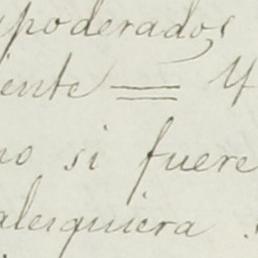 apoderados
iente = Y
no si fuere
alesquiera